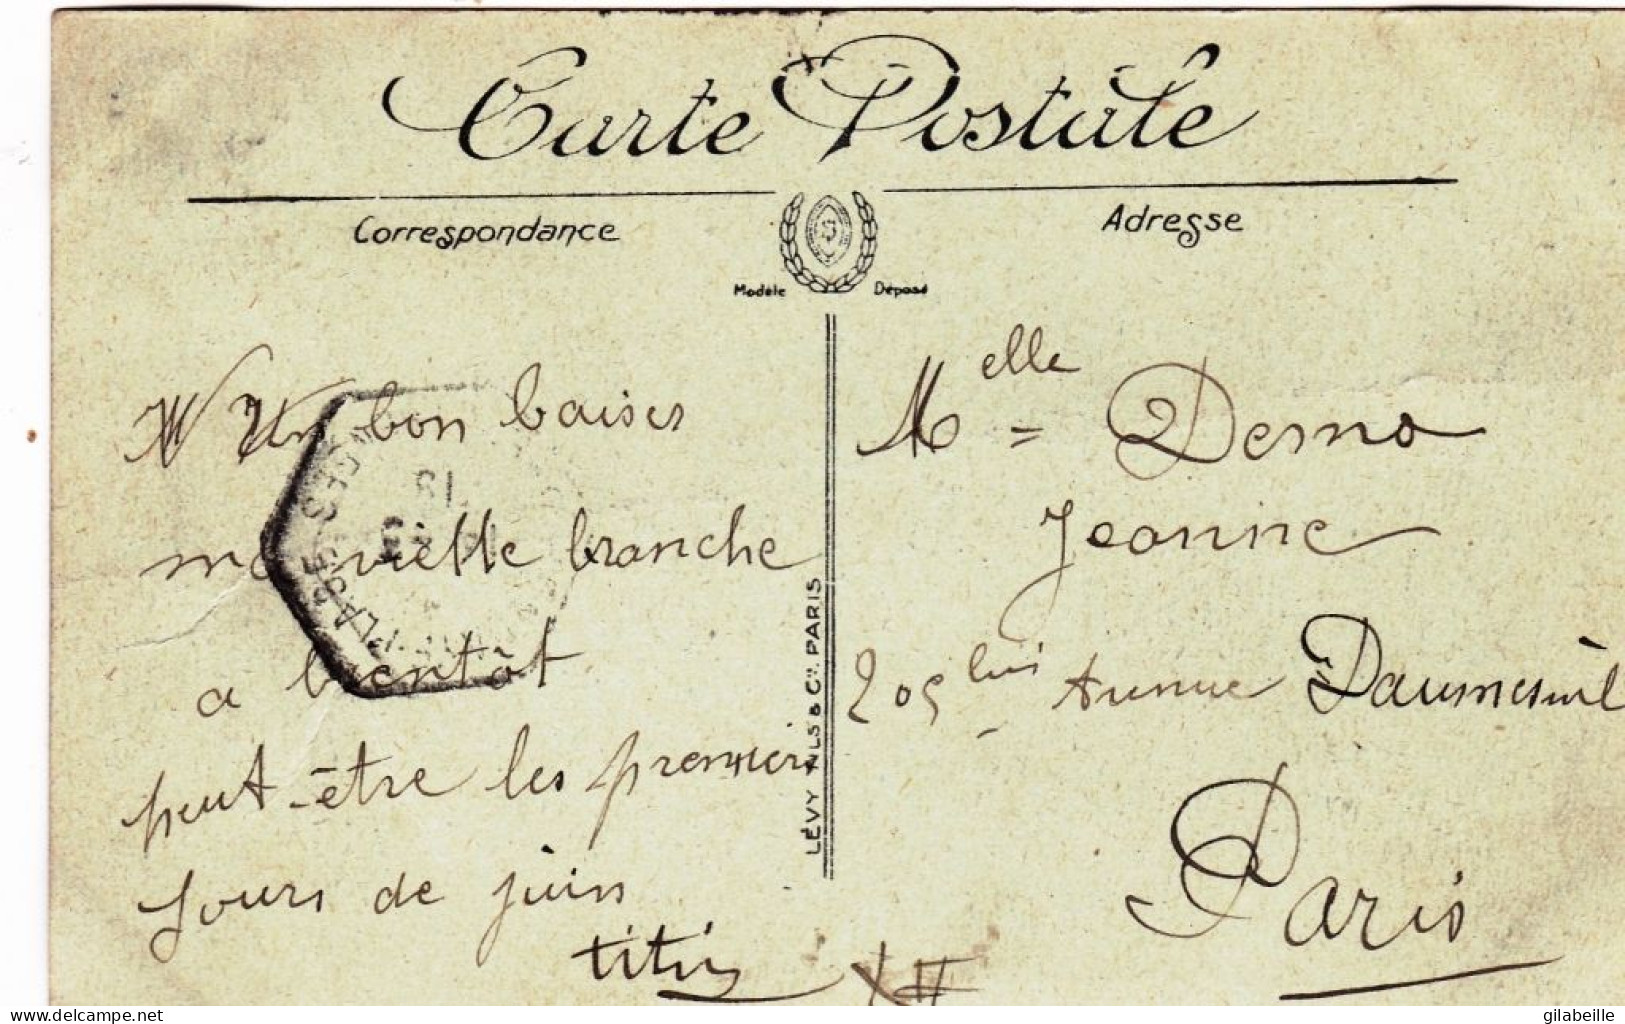 Carte Postale
Correspondance
Adresse
Modèle Déposé
Un bon baiser
ma vielle branche
a bientôt
peut-être les premier
Jours de juin
titin
LÉVY FILS & Cie. PARIS
Melle = Desmo
Jeanne
205 bis Avenue Daumesnil
Paris
XII
delcampe.net
gilabeille